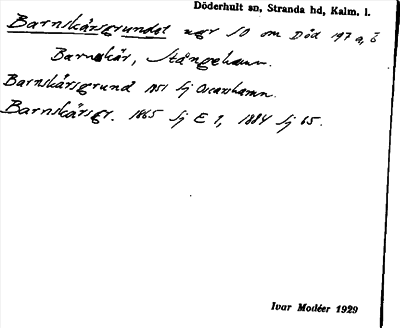 Döderhult sn, Stranda hd, Kalm. l.
Barnskärsgrundet ngr SO om Död 197 a, ö
Barnskär, Stångehamn.
Barnskärsgrund 1851 Sj Oscarshamn.
Barnskärsgr. 1865 Sj E 9, 1884 Sj 65.
Ivar Modéer 1929